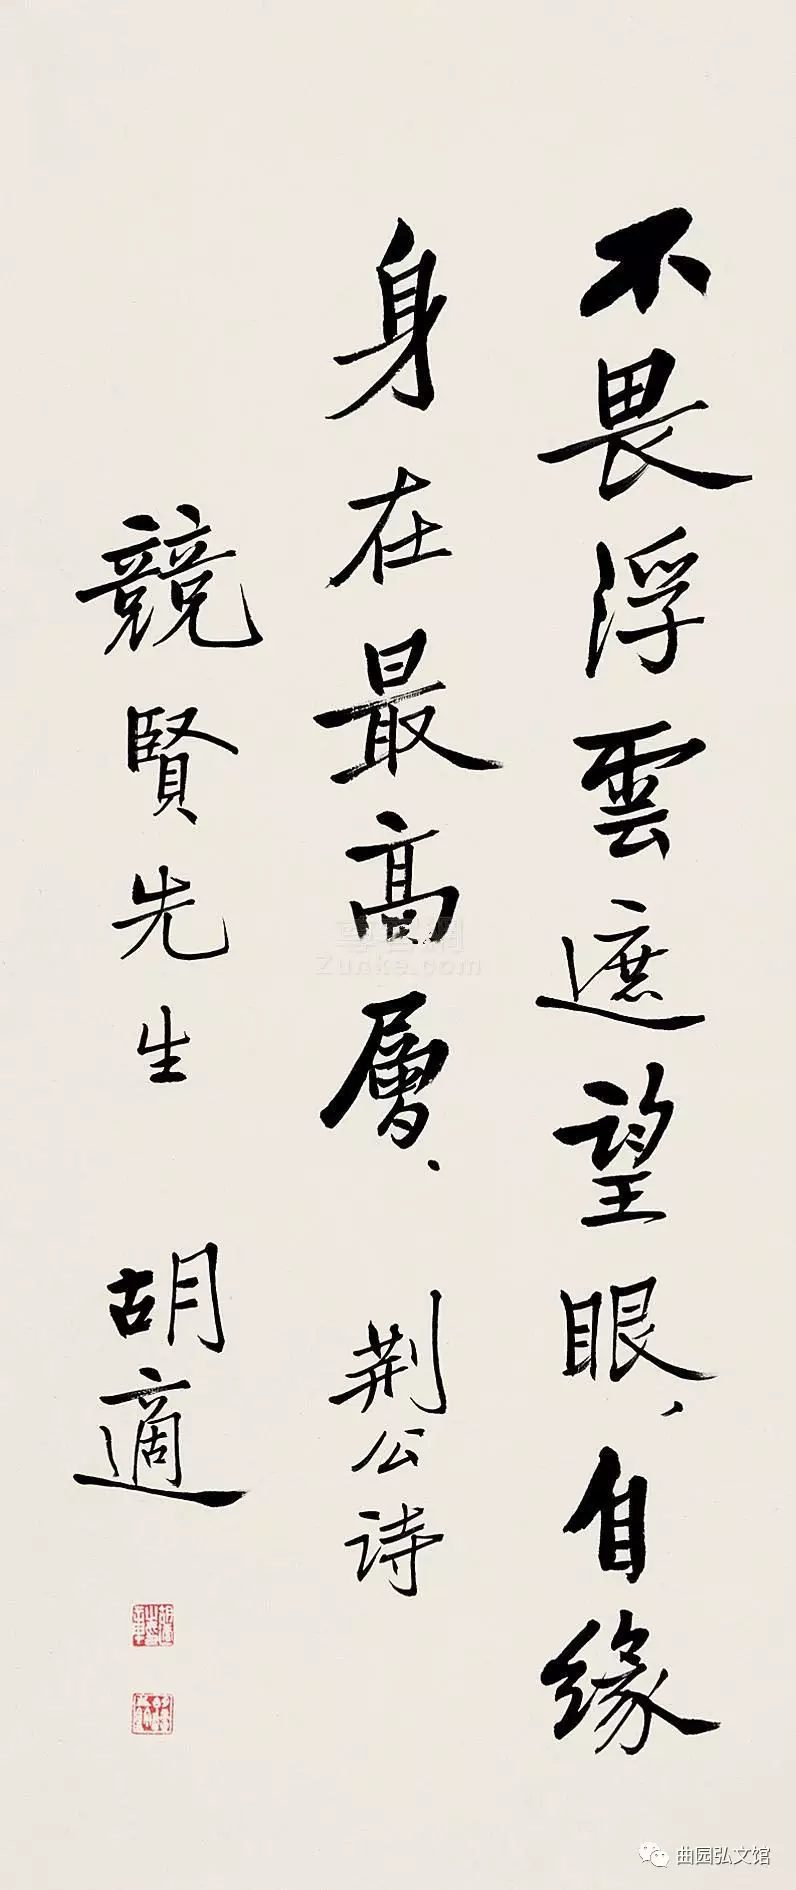 不畏浮雲遮望眼，自缘
身在最高層、荆公诗
競賢先生 胡適
尊客網
Zunke.com
曲园弘文馆